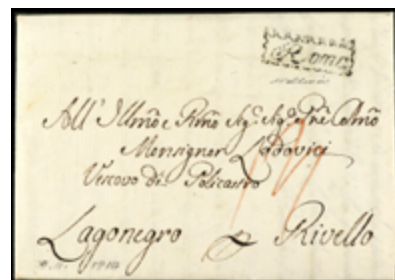 Roma
All' Illmo e Rmo Sig.r Sig.r Pne Colmo
Monsignor Lodovici
Vescovo di Policastro
Lagonegro p Rivello